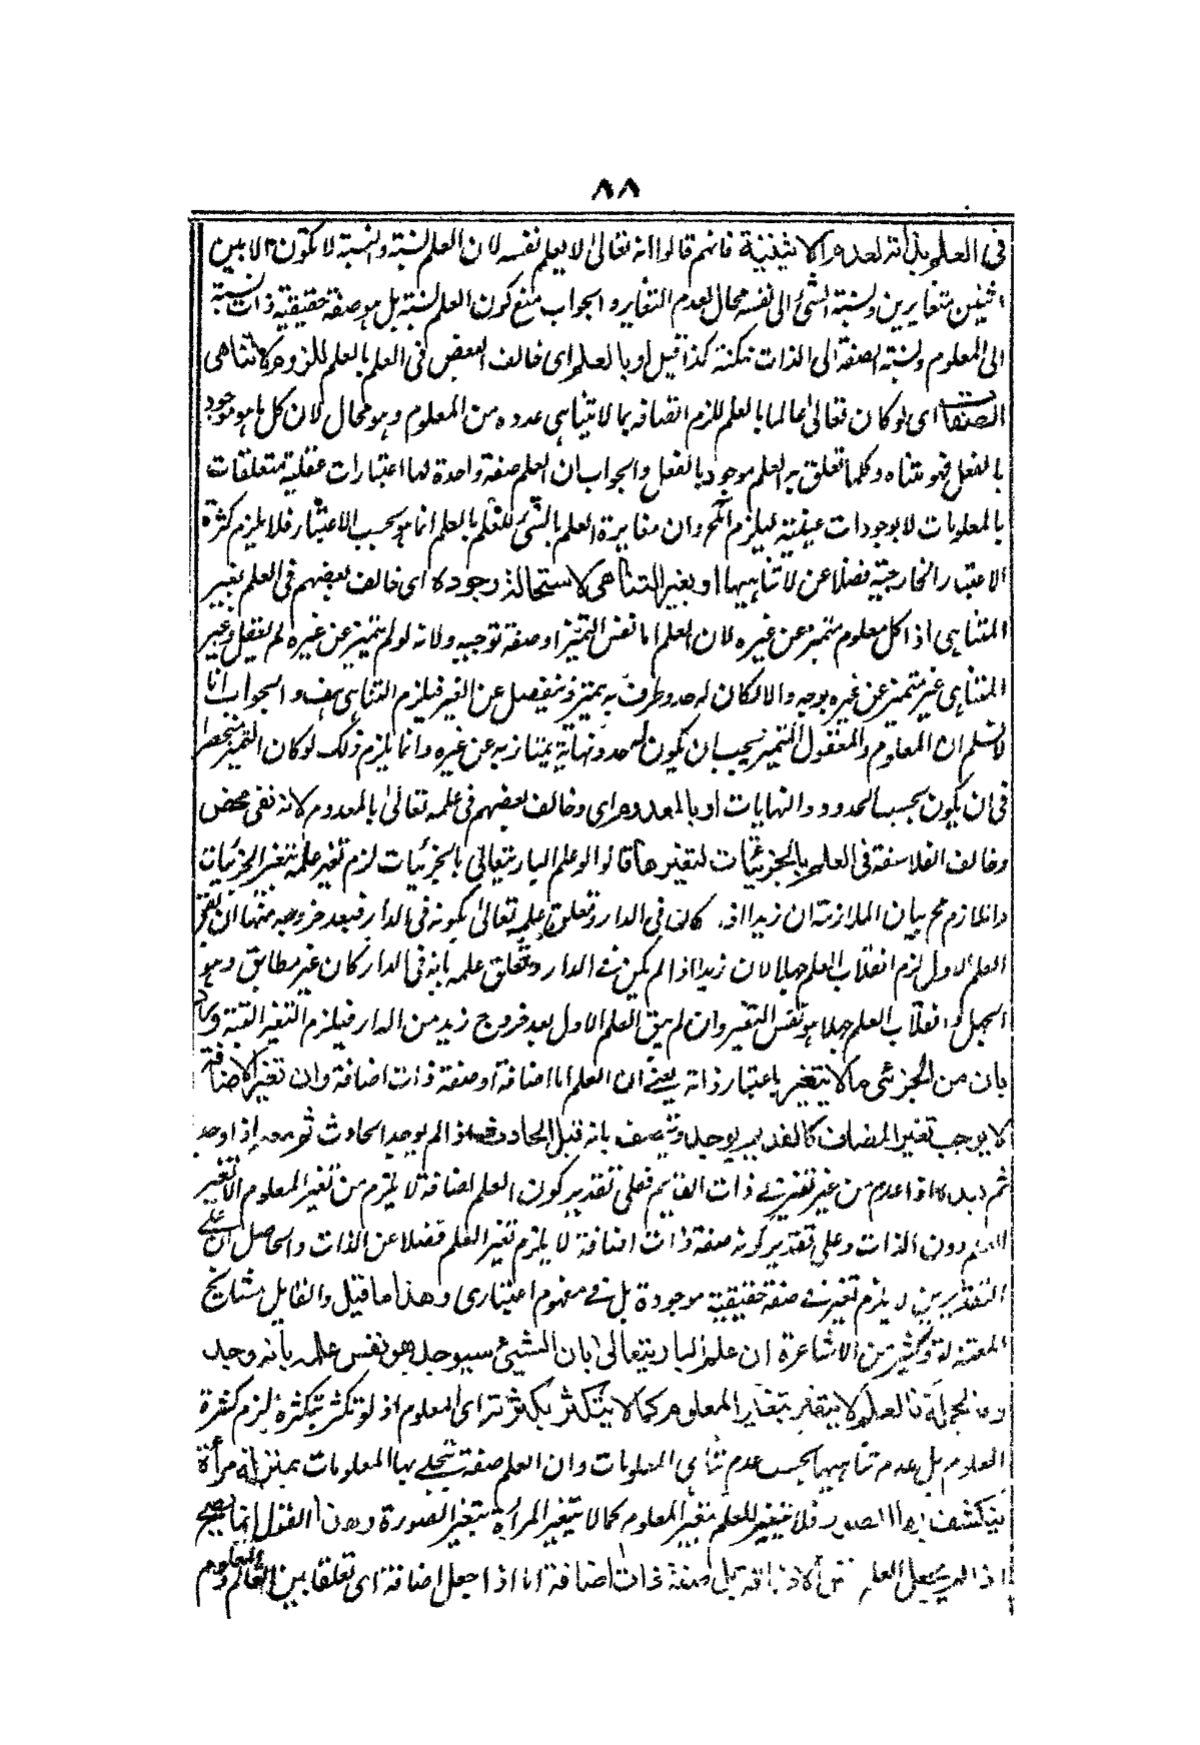 ٨٨
فى العلم بذاته لعدم الاثنينية فانهم قالوا انه تعالى لا يعلم نفسه لان العلم نسبة والنسبة لا تكون الا بين
اثنين متغايرين ونسبة الشئ الى نفسه محال لعدم التغاير والجواب منع كون العلم نسبة بل هو صفة حقيقية ذات نسبة
الى المعلوم ونسبة الصفة الى الذات ممكنة كذا قيل او بالعلم اى خالف البعض فى العلم بالعلم للزوم لا تناهى
الصفات اى لو كان تعالى عالما بالعلم للزم اتصافه بما لا يتناهى عدده من المعلوم وهو محال لان كل ما هو موجود
بالفعل فهو متناه وكلما تعلق به العلم موجود بالفعل والجواب ان العلم صفة واحدة لها اعتبارات عقلية متعلقات
بالمعلومات لا بوجودات عينية ليلزم المحال وان مغايرة العلم بالشئ للعلم بالعلم انما هو بحسب الاعتبار فلا يلزم كثرة
الاعتبار الخارجية فضلا عن لا تناهيها او بغير المتناهى لاستحالة وجوده اى خالف بعضهم فى العلم بغير
المتناهى اذ كل معلوم متميز عن غيره لان العلم اما نفس التميز او صفة توجبه ولانه لو لم يتميز عن غيره لم يعقل وغير
المتناهى غير متميز عن غيره بوجه والا لكان له حد وطرف به يتميز وينفصل عن الغير فيلزم التناهى هف والجواب انا
لا نسلم ان المعلوم والمعقول المتميز يجب ان يكون له حد ونهاية يمتاز به عن غيره وانما يلزم ذلك لو كان التميز منحصرا
فى ان يكون بحسب الحدود والنهايات او بالمعدوم اى وخالف بعضهم فى علمه تعالى بالمعدوم لانه نفى محض
وخالف الفلاسفة فى العلم بالجزئيات لتغيرها قالوا لو علم البارى تعالى بالجزئيات لزم تغير علمه بتغير الجزئيات
واللازم مح بيان الملازمة ان زيدا اذا كان فى الدار وتعلق علمه تعالى بكونه فى الدار فبعد خروجه منها ان بقى
العلم الاول لزم انقلاب العلم جهلا لان زيدا اذا لم يكن فى الدار وتعلق علمه بانه فى الدار كان غير مطابق وهو
الجهل وانقلاب العلم جهلا هو نفس التغير وان لم يبق العلم الاول بعد خروج زيد من الدار فيلزم التغير البتة ورد
بان من الجزئى ما لا يتغير باعتبار ذاته يعنى ان العلم اما اضافة او صفة ذات اضافة وان تغير الاضافة
لا يوجب تغير المضاف كالقديم يوجد ويتصف بانه قبل الحادث اذا لم يوجد الحادث ثم معه اذا وجد
ثم بعده اذا عدم من غير تغير فى ذات القديم فعلى تقدير كون العلم اضافة لا يلزم من تغير المعلوم الا تغير
العلم دون الذات وعلى تقدير كونه صفة ذات اضافة لا يلزم تغير العلم فضلا عن الذات والحاصل ان على
التقديرين لا يلزم تغير فى صفة حقيقية موجودة بل فى مفهوم اعتبارى وهذا ما قيل والقايل مشايخ
المعتزلة وكثير من الاشاعرة ان علم البارى تعالى بان الشيئ سيوجد هو نفس علمه بانه وجد
وبالجملة فالعلم لا يتغير بتغاير المعلوم كما لا يتكثر بكثرته اى المعلوم اذ لو تكثر بتكثره لزم كثرة
العلوم بل عدم تناهيها بحسب عدم تناهى المعلومات وان العلم صفة تتجلى بها المعلومات بمنزلة مرأة
ينكشف بها الصور فلا يتغير العلم بتغير المعلوم كما لا يتغير المرأة بتغير الصورة وهذا القول انما يصح
اذا لم يجعل العلم نفس الاضافة بل صفة ذات اضافة اما اذا جعل اضافة اى تعلقا بين العالم والمعلوم